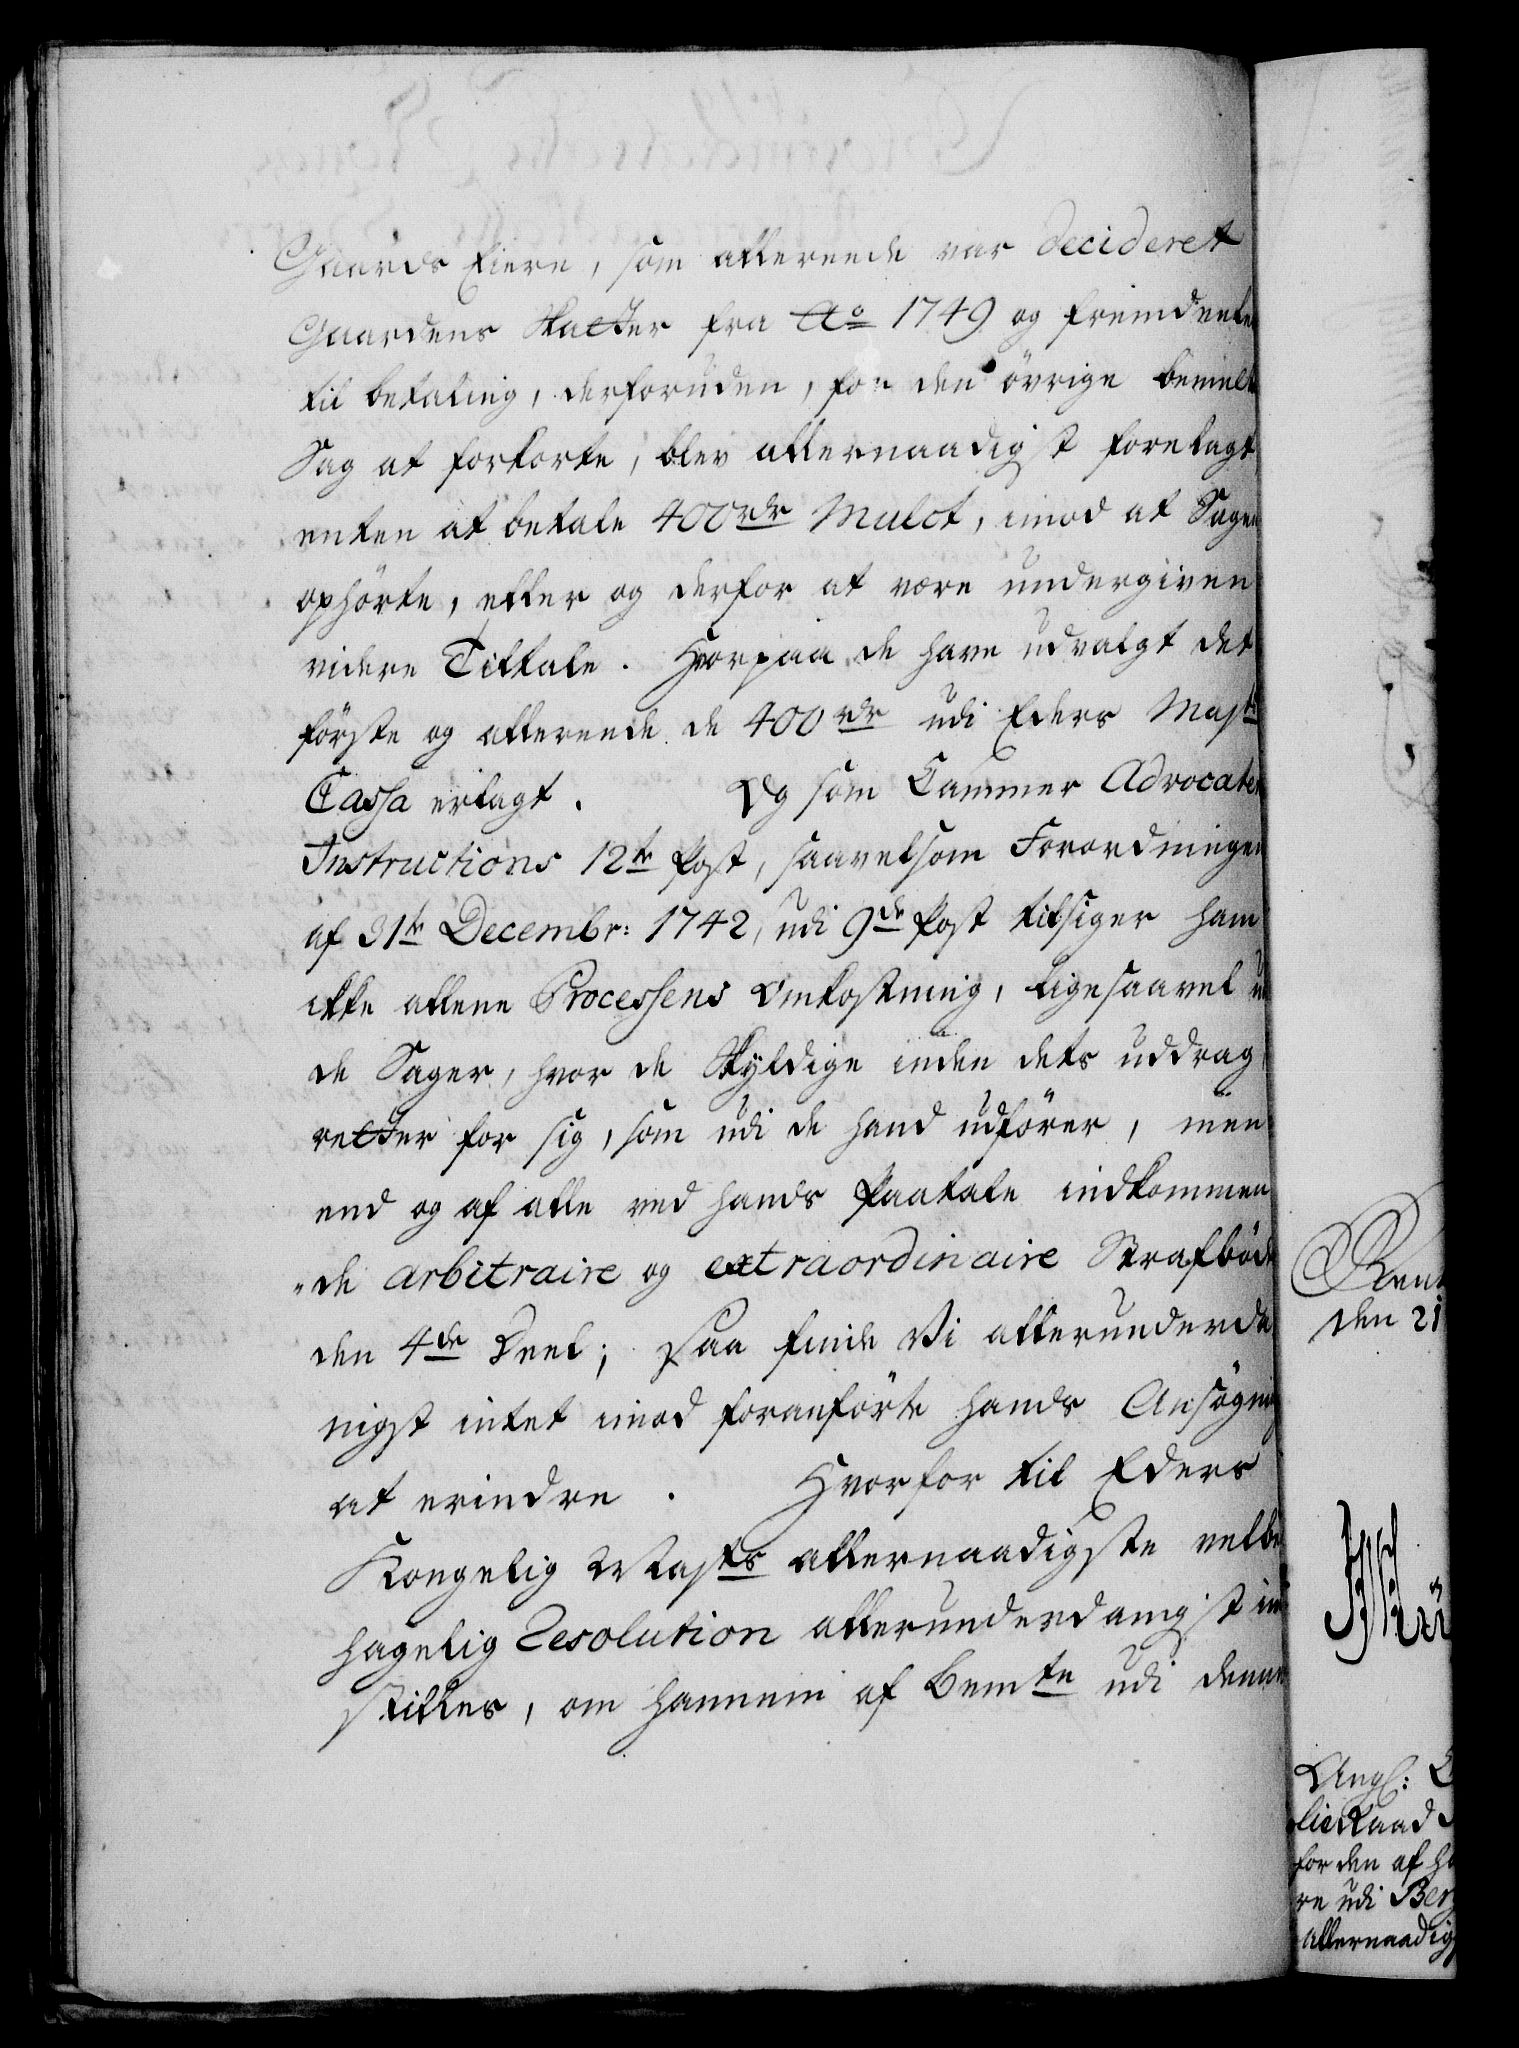 Gaards Eiere, som allereede var decideret
Gaardens Skatter fra Ao 1749 og fremdeeles
til betaling, desforuden, for den övrige bemelte
Sag at forkorte, blev allernaadigst forelagt
enten at betale 400 rdr Mulct, imod at Sagen
ophörte, eller og derfor at være undergiven
videre Tiltale. Hvorpaa de have udvalgt det
förste og allereede de 400 rdr udi Eders Majts
Cassa erlagt. Og som Cammer Advocatens
Instructions 12te Post, saavelsom Forordningen
af 31te Decembr: 1742, udi 9de Post tilsiger ham
ikke allene Processens Omkostning, ligesaavel i
de Sager, hvor de Skyldige inden dets uddrag
retter for sig, som udi de hand udförer, men
end og af alle ved hands Paatale indkommen
"de arbitraire og extraordinaire Strafböder
den 4de Deel; Saa finde Vi allerunderda
nigst intet imod foranförte hands Ansögning
at erindre. Hvorfor til Eders
Kongelig Majts allernaadigste velbe
hagelig Resolution allerunderdanigst ind
stilles, om hannem af Bemte udi denne
Rent
den 21
Angl:
lieRaad
for den af h
re udi Berg
allernaadigst